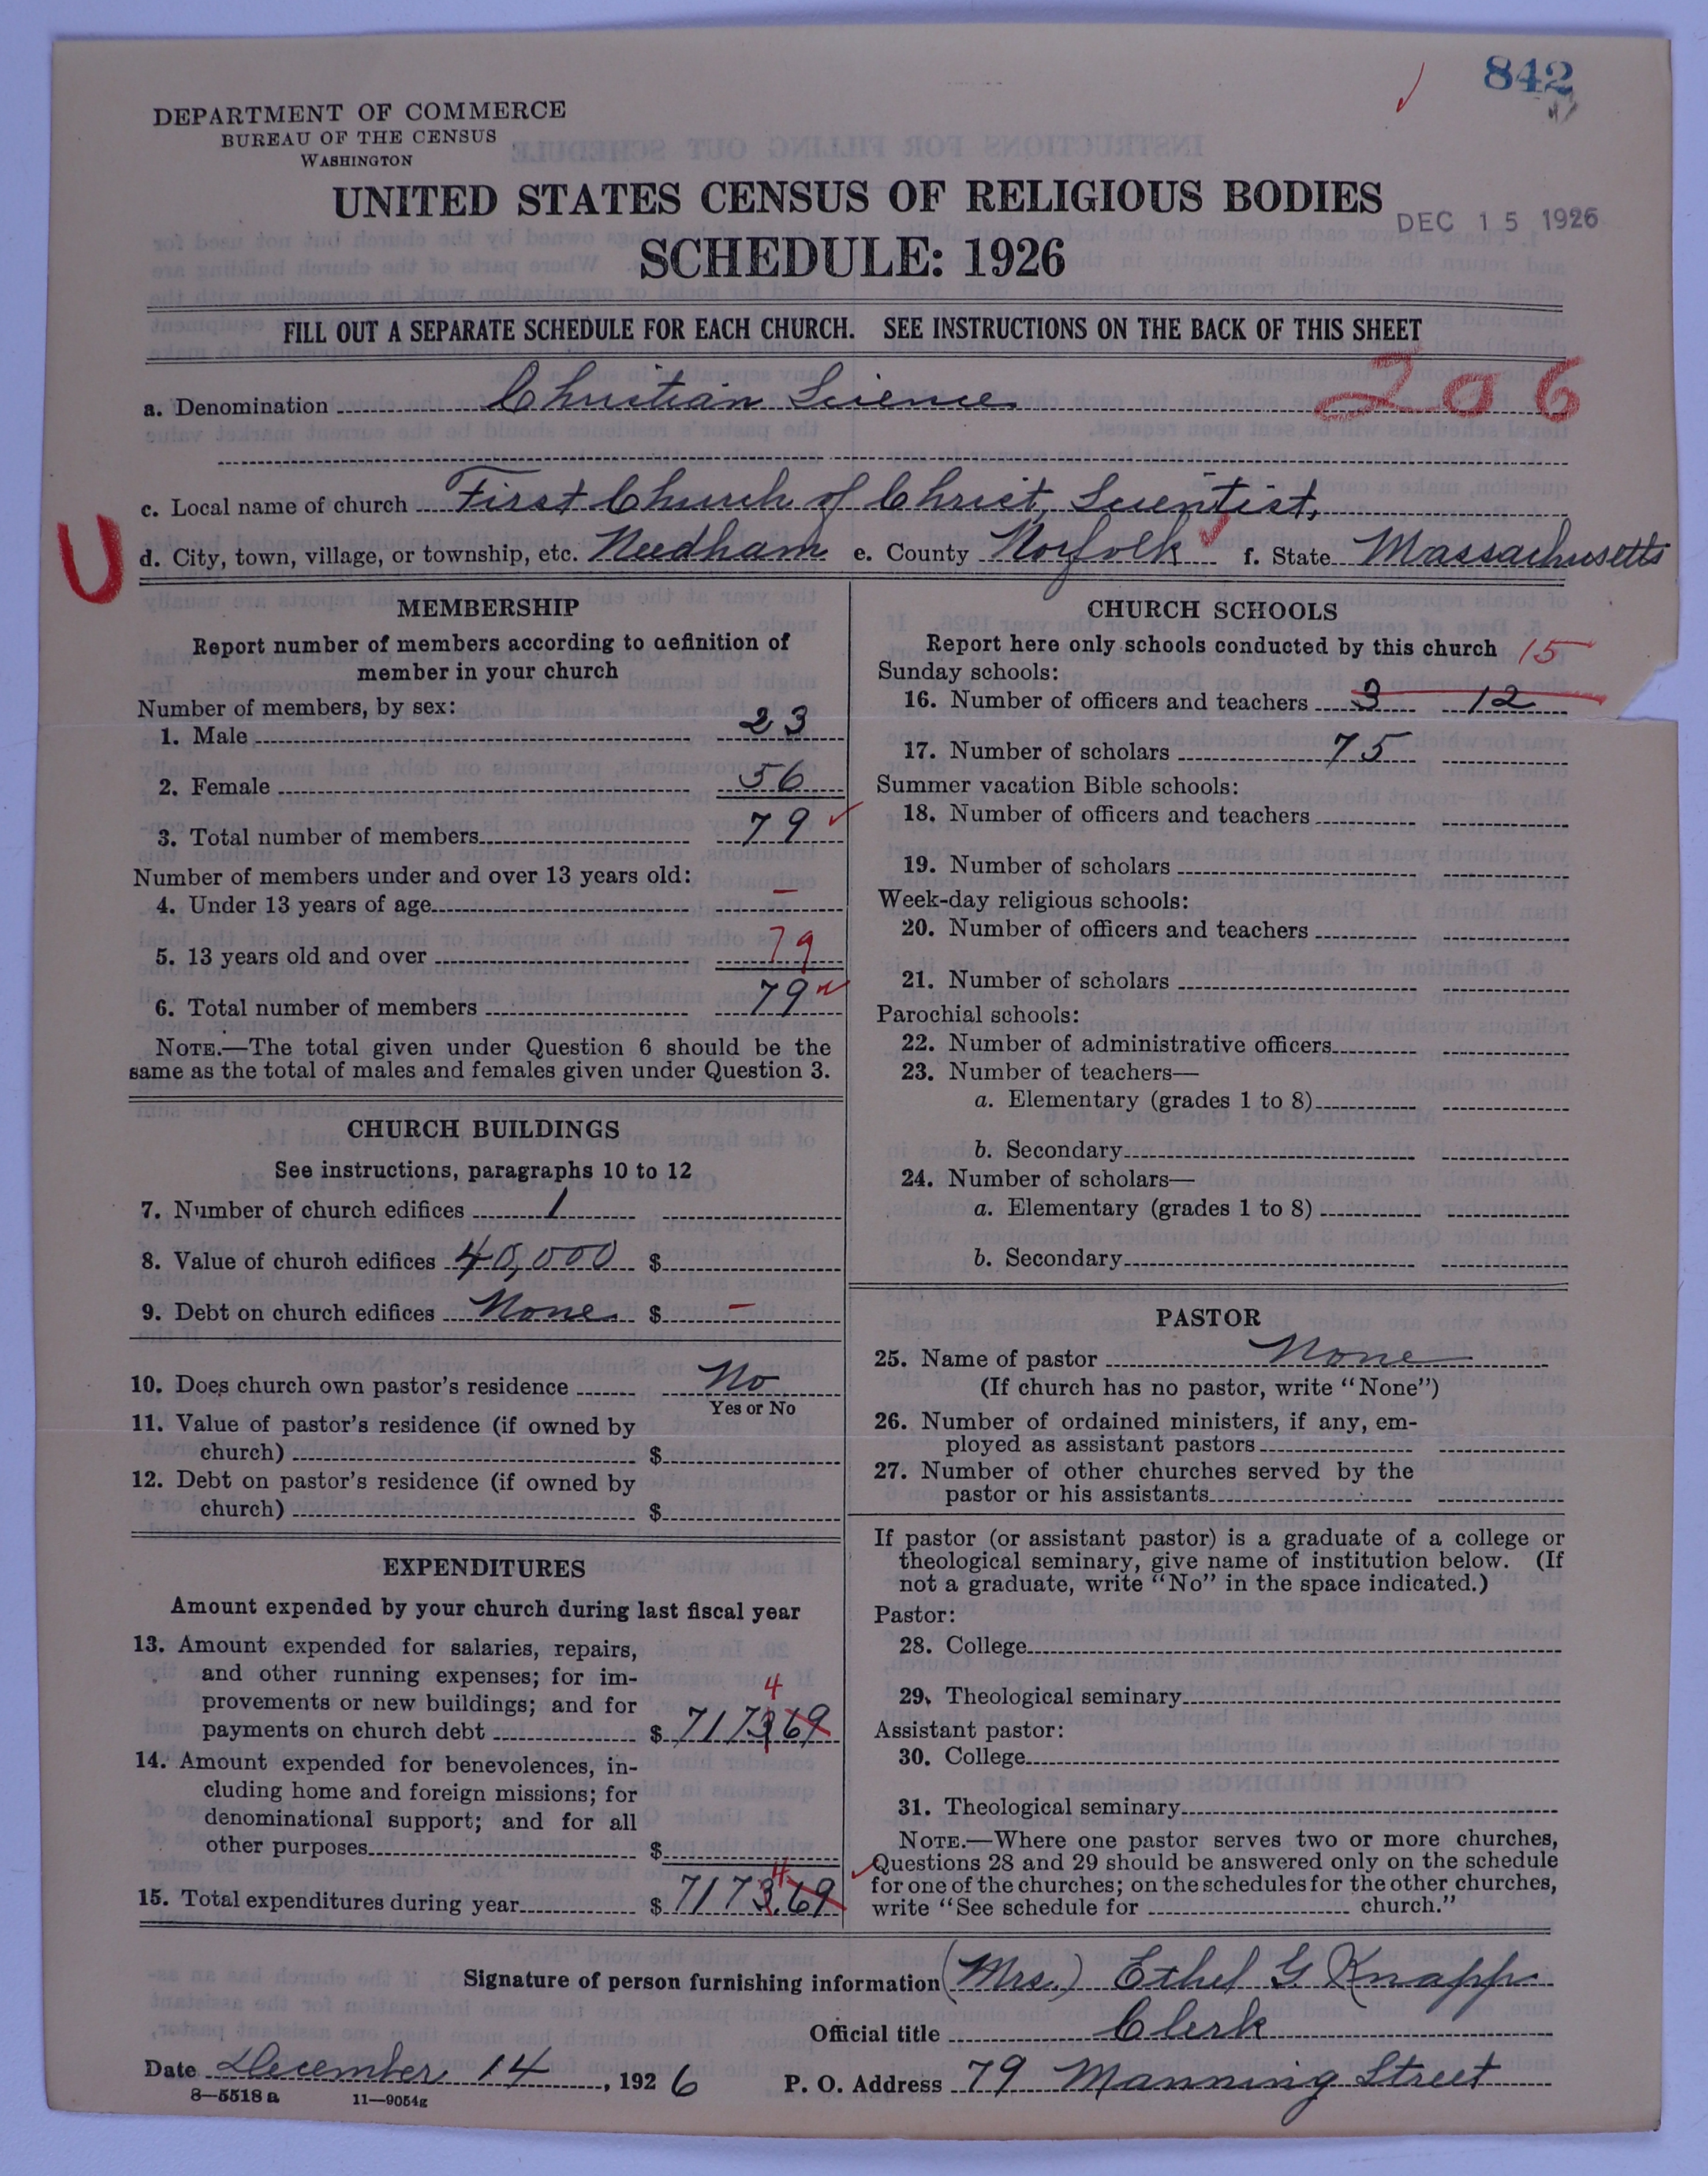 842
DEPARTMENT OF COMMERCE
BUREAU OF THE CENSUS
WASHINGTON
UNITED STATES CENSUS OF RELIGIOUS BODIES
DEC 15 1926
SCHEDULE: 1926
FILL OUT A SEPARATE SCHEDULE FOR EACH CHURCH. SEE INSTRUCTIONS ON THE BACK OF THIS SHEET
206
a. Denomination Christian Science
c. Local name of church First Church of Christ, Scientist,
U
d. City, town, village, or township, etc. Needham e. County Norfolk f. State Massachusetts
MEMBERSHIP
Report number of members according to definition of
member in your church
Number of members, by sex:
1. Male 23
2. Female 56
3. Total number of members 79
Number of members under and over 13 years old:
4. Under 13 years of age —
5. 13 years old and over 79
6. Total number of members 79
NOTE.—The total given under Question 6 should be the
same as the total of males and females given under Question 3.
CHURCH BUILDINGS
See instructions, paragraphs 10 to 12
7. Number of church edifices 1
8. Value of church edifices 40,000 $
9. Debt on church edifices None $ —
10. Does church own pastor's residence No
Yes or No
11. Value of pastor's residence (if owned by
church) $
12. Debt on pastor's residence (if owned by
church) $
EXPENDITURES
Amount expended by your church during last fiscal year
13. Amount expended for salaries, repairs,
and other running expenses; for im-
provements or new buildings; and for
4
payments on church debt $ 7173 69
14. Amount expended for benevolences, in-
cluding home and foreign missions; for
denominational support; and for all
other purposes $
4
15. Total expenditures during year $ 7173.69
CHURCH SCHOOLS
Report here only schools conducted by this church 15
Sunday schools:
16. Number of officers and teachers 3 12
17. Number of scholars 75
Summer vacation Bible schools:
18. Number of officers and teachers
19. Number of scholars
Week-day religious schools:
20. Number of officers and teachers
21. Number of scholars
Parochial schools:
22. Number of administrative officers
23. Number of teachers—
a. Elementary (grades 1 to 8)
b. Secondary
24. Number of scholars—
a. Elementary (grades 1 to 8)
b. Secondary
PASTOR
25. Name of pastor None
(If church has no pastor, write "None")
26. Number of ordained ministers, if any, em-
ployed as assistant pastors
27. Number of other churches served by the
pastor or his assistants
If pastor (or assistant pastor) is a graduate of a college or
theological seminary, give name of institution below. (If
not a graduate, write "No" in the space indicated.)
Pastor:
28. College
29. Theological seminary
Assistant pastor:
30. College
31. Theological seminary
NOTE.—Where one pastor serves two or more churches,
Questions 28 and 29 should be answered only on the schedule
for one of the churches; on the schedules for the other churches,
write "See schedule for church."
Signature of person furnishing information (Mrs.) Ethel G Knapp
Official title Clerk
Date December 14, 1926 P. O. Address 79 Manning Street
8—5518 a 11—9054g